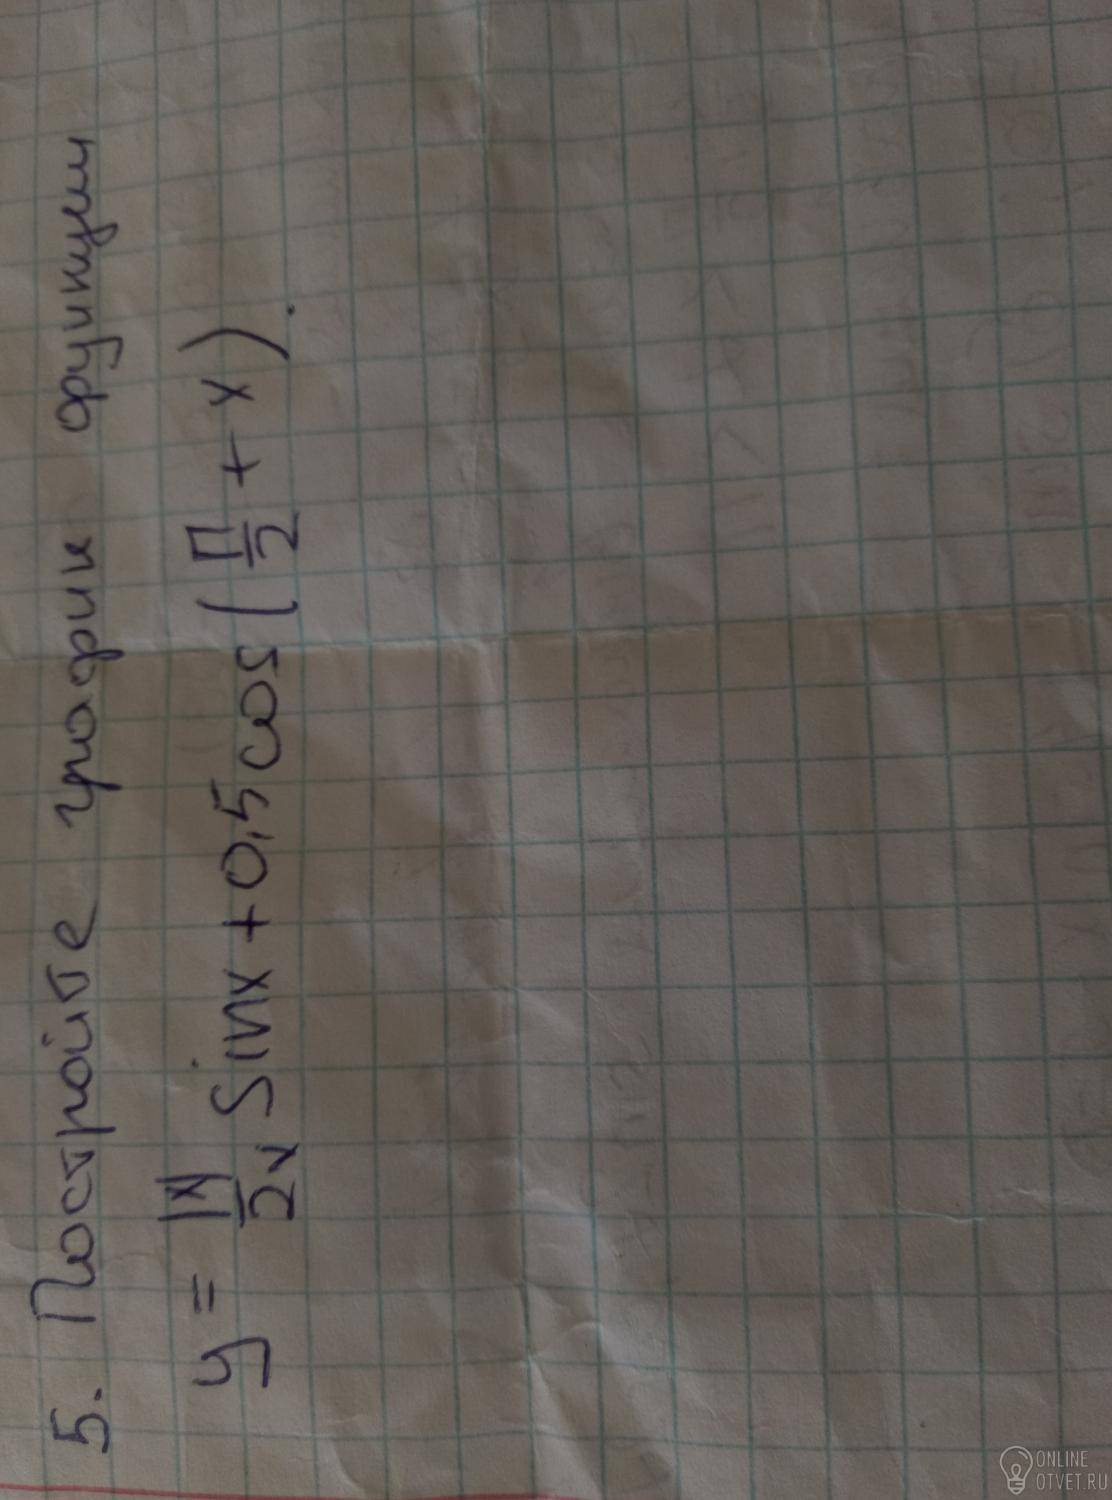 5. Постройте график функции
y = |x|/2x sinx + 0,5 cos (П/2 + x).
ONLINE
OTVET.RU